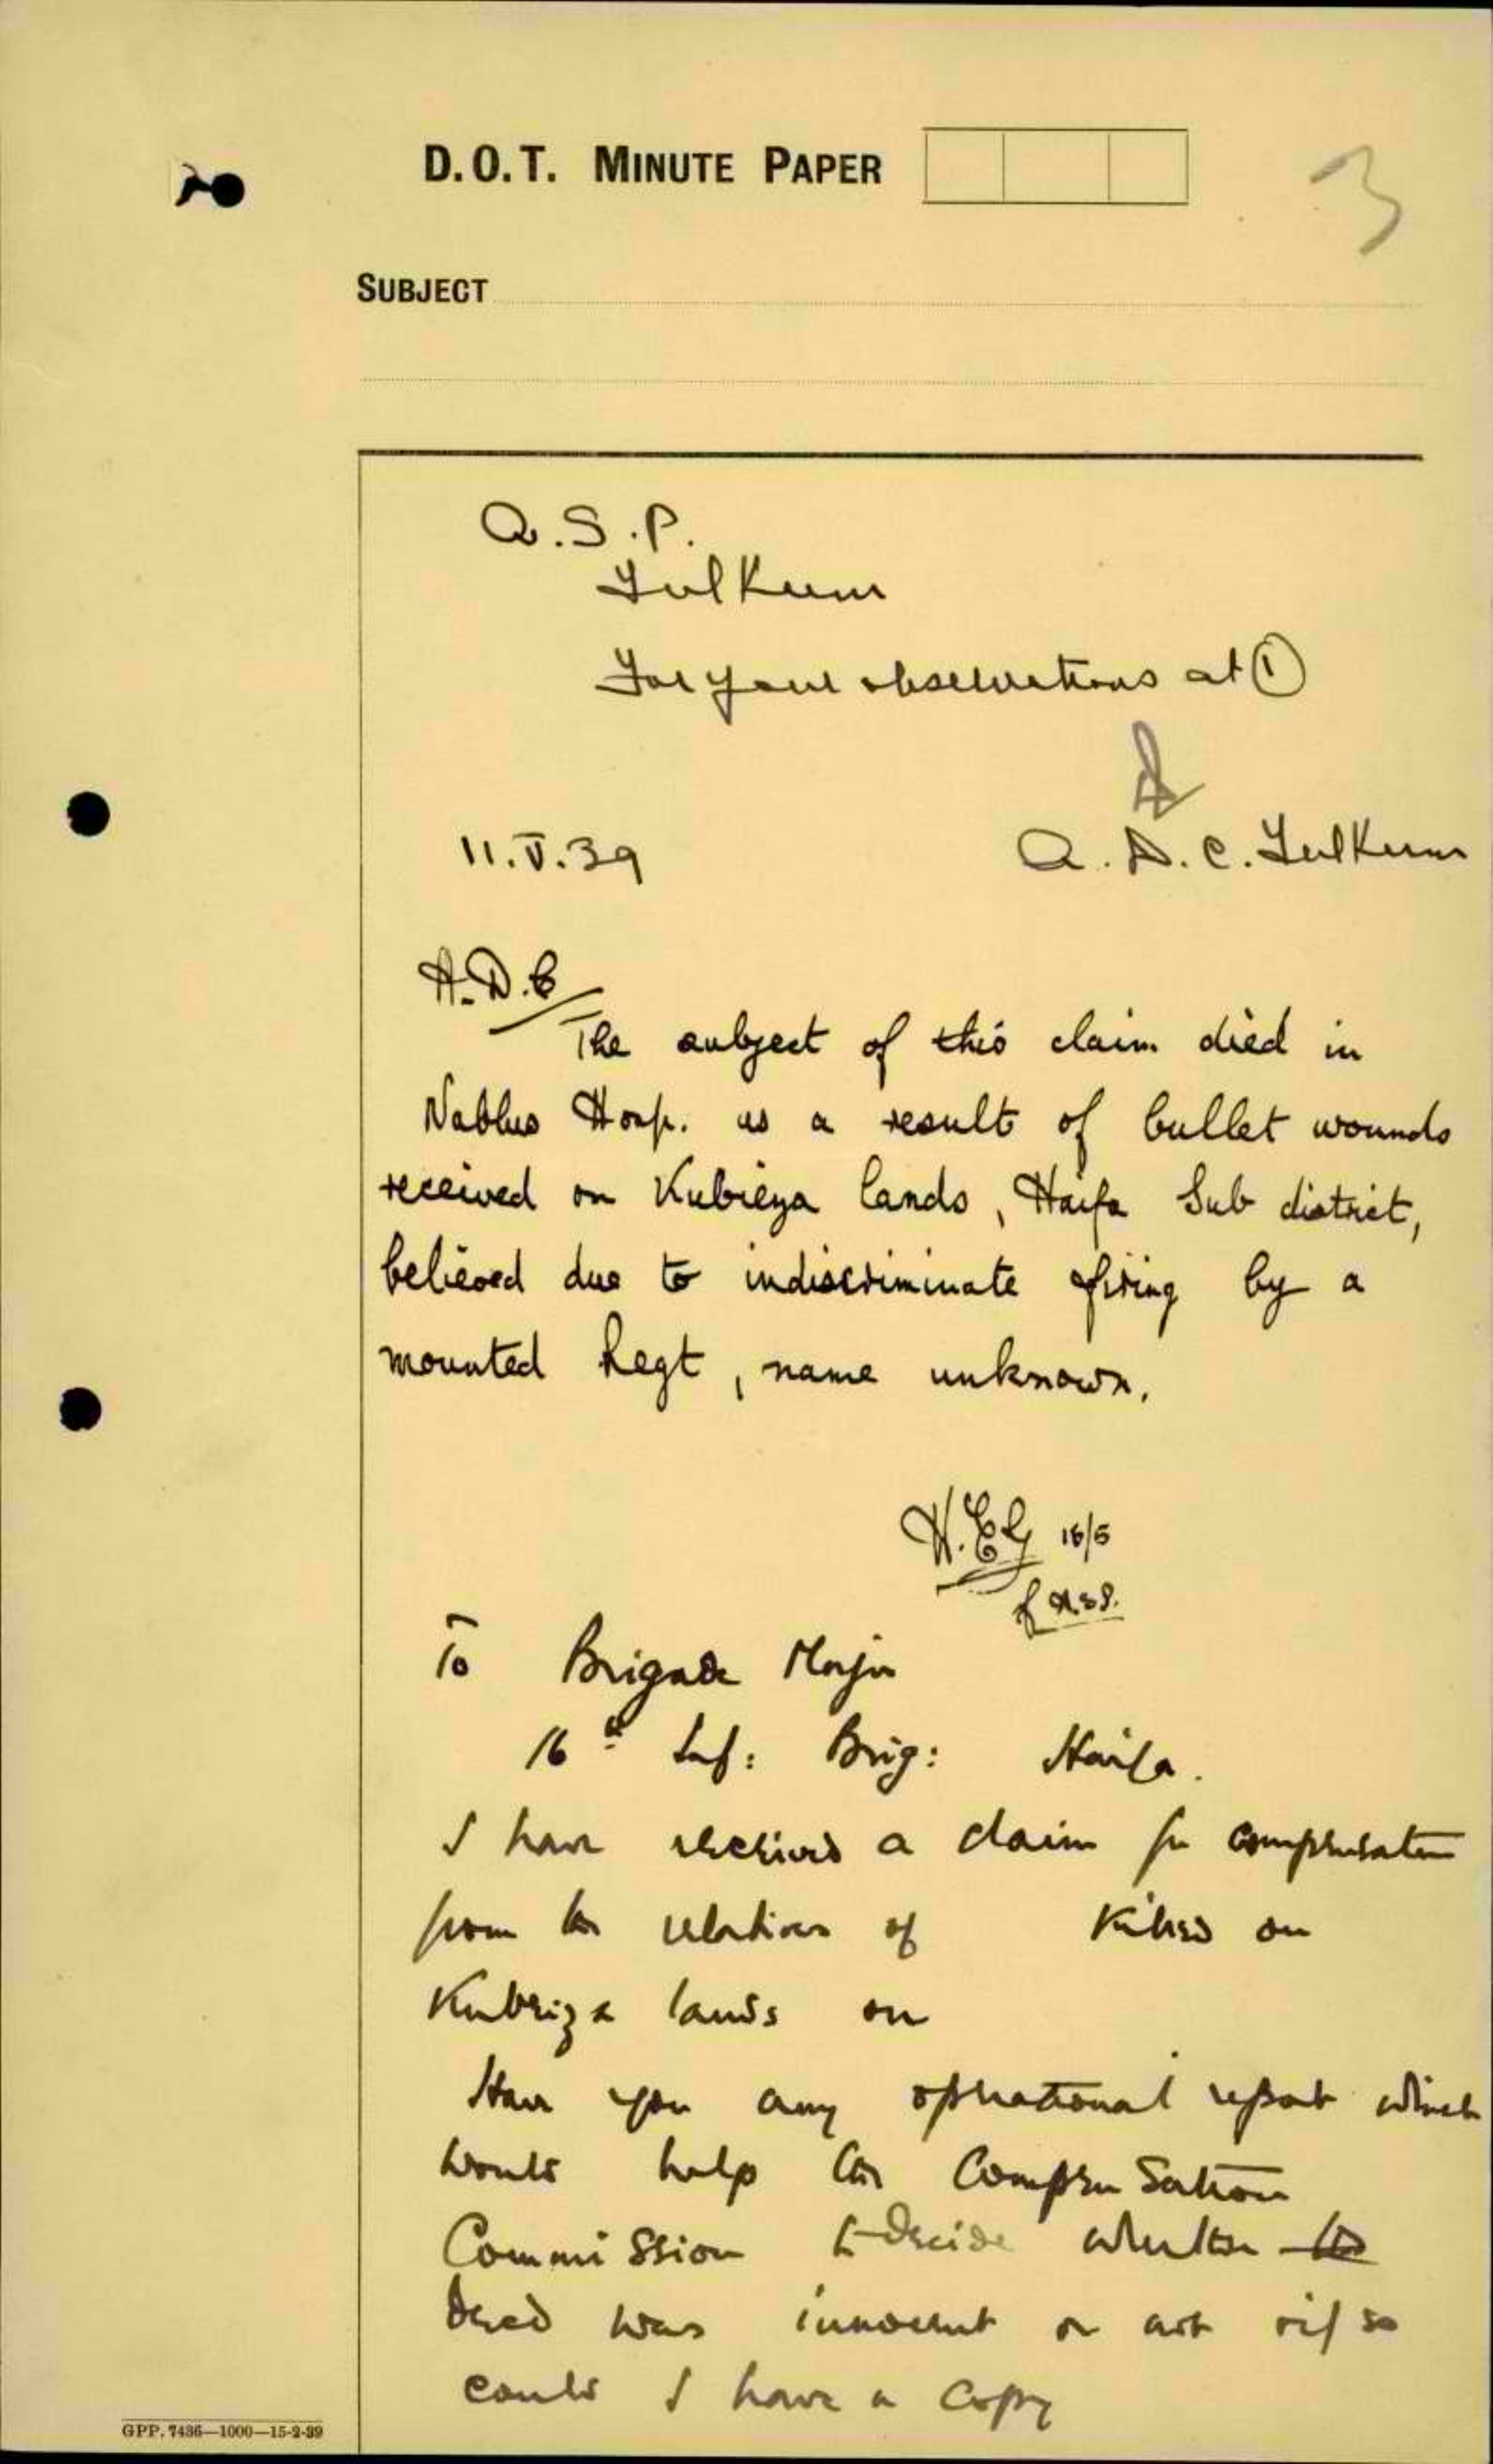 D.O.T. MINUTE PAPER
3
SUBJECT
A.S.P.
Tulkum
For your observations at ①
11.V.39
A.D.C. Tulkum
A.D.C
The subject of this claim died in
Nablus Hosp. as a result of bullet wounds
received on Kubieya lands, Haifa Sub district,
believed due to indiscriminate firing by a
mounted Regt, name unknown.
16/5
f A.S.P.
To Brigade Major
16th Inf: Brig: Haifa.
I have received a claim for compensation
from the relatives of killed on
Kubeiza lands on
Have you any operational report which
would help the Compensation
Commission to decide whether the
dead was innocent or not & if so
could I have a copy
GPP. 7436—1000—15-2-39